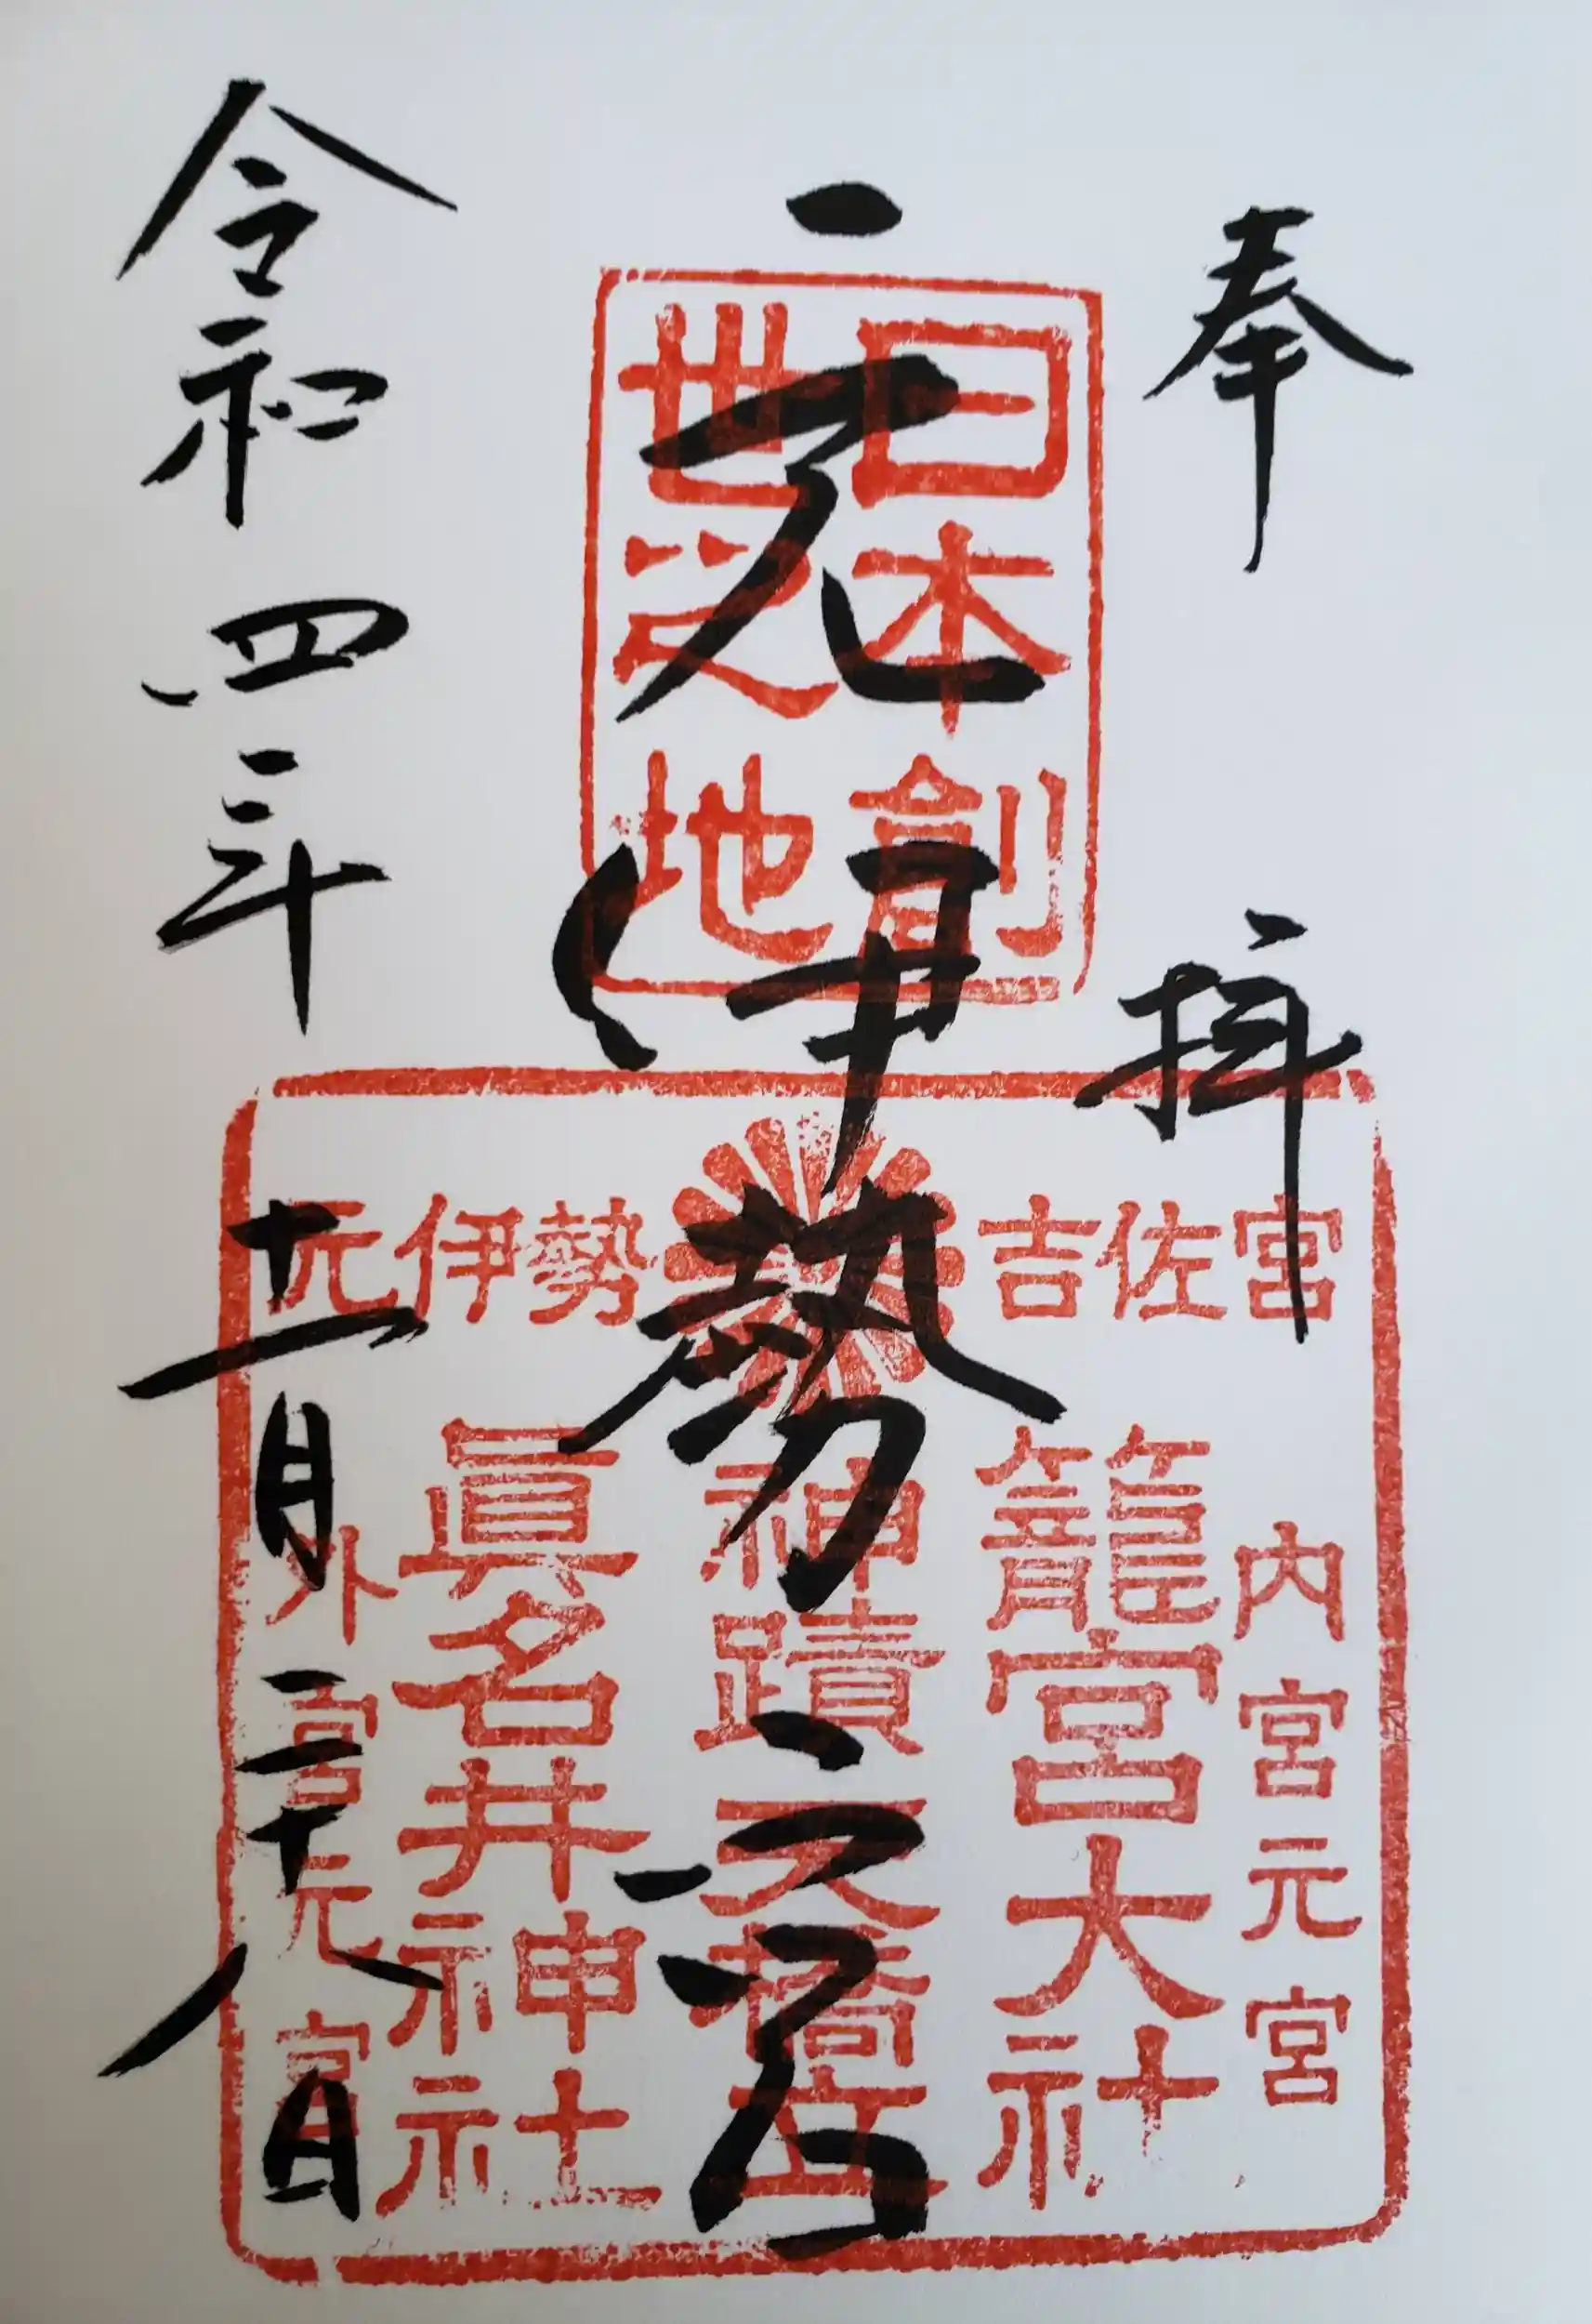 奉拝
元伊勢之宮
令和四年十一月二十八日
日本創
世之地
元伊勢
吉佐宮
内宮元宮
籠宮大社
神蹟天橋立
眞名井神社
外宮元宮